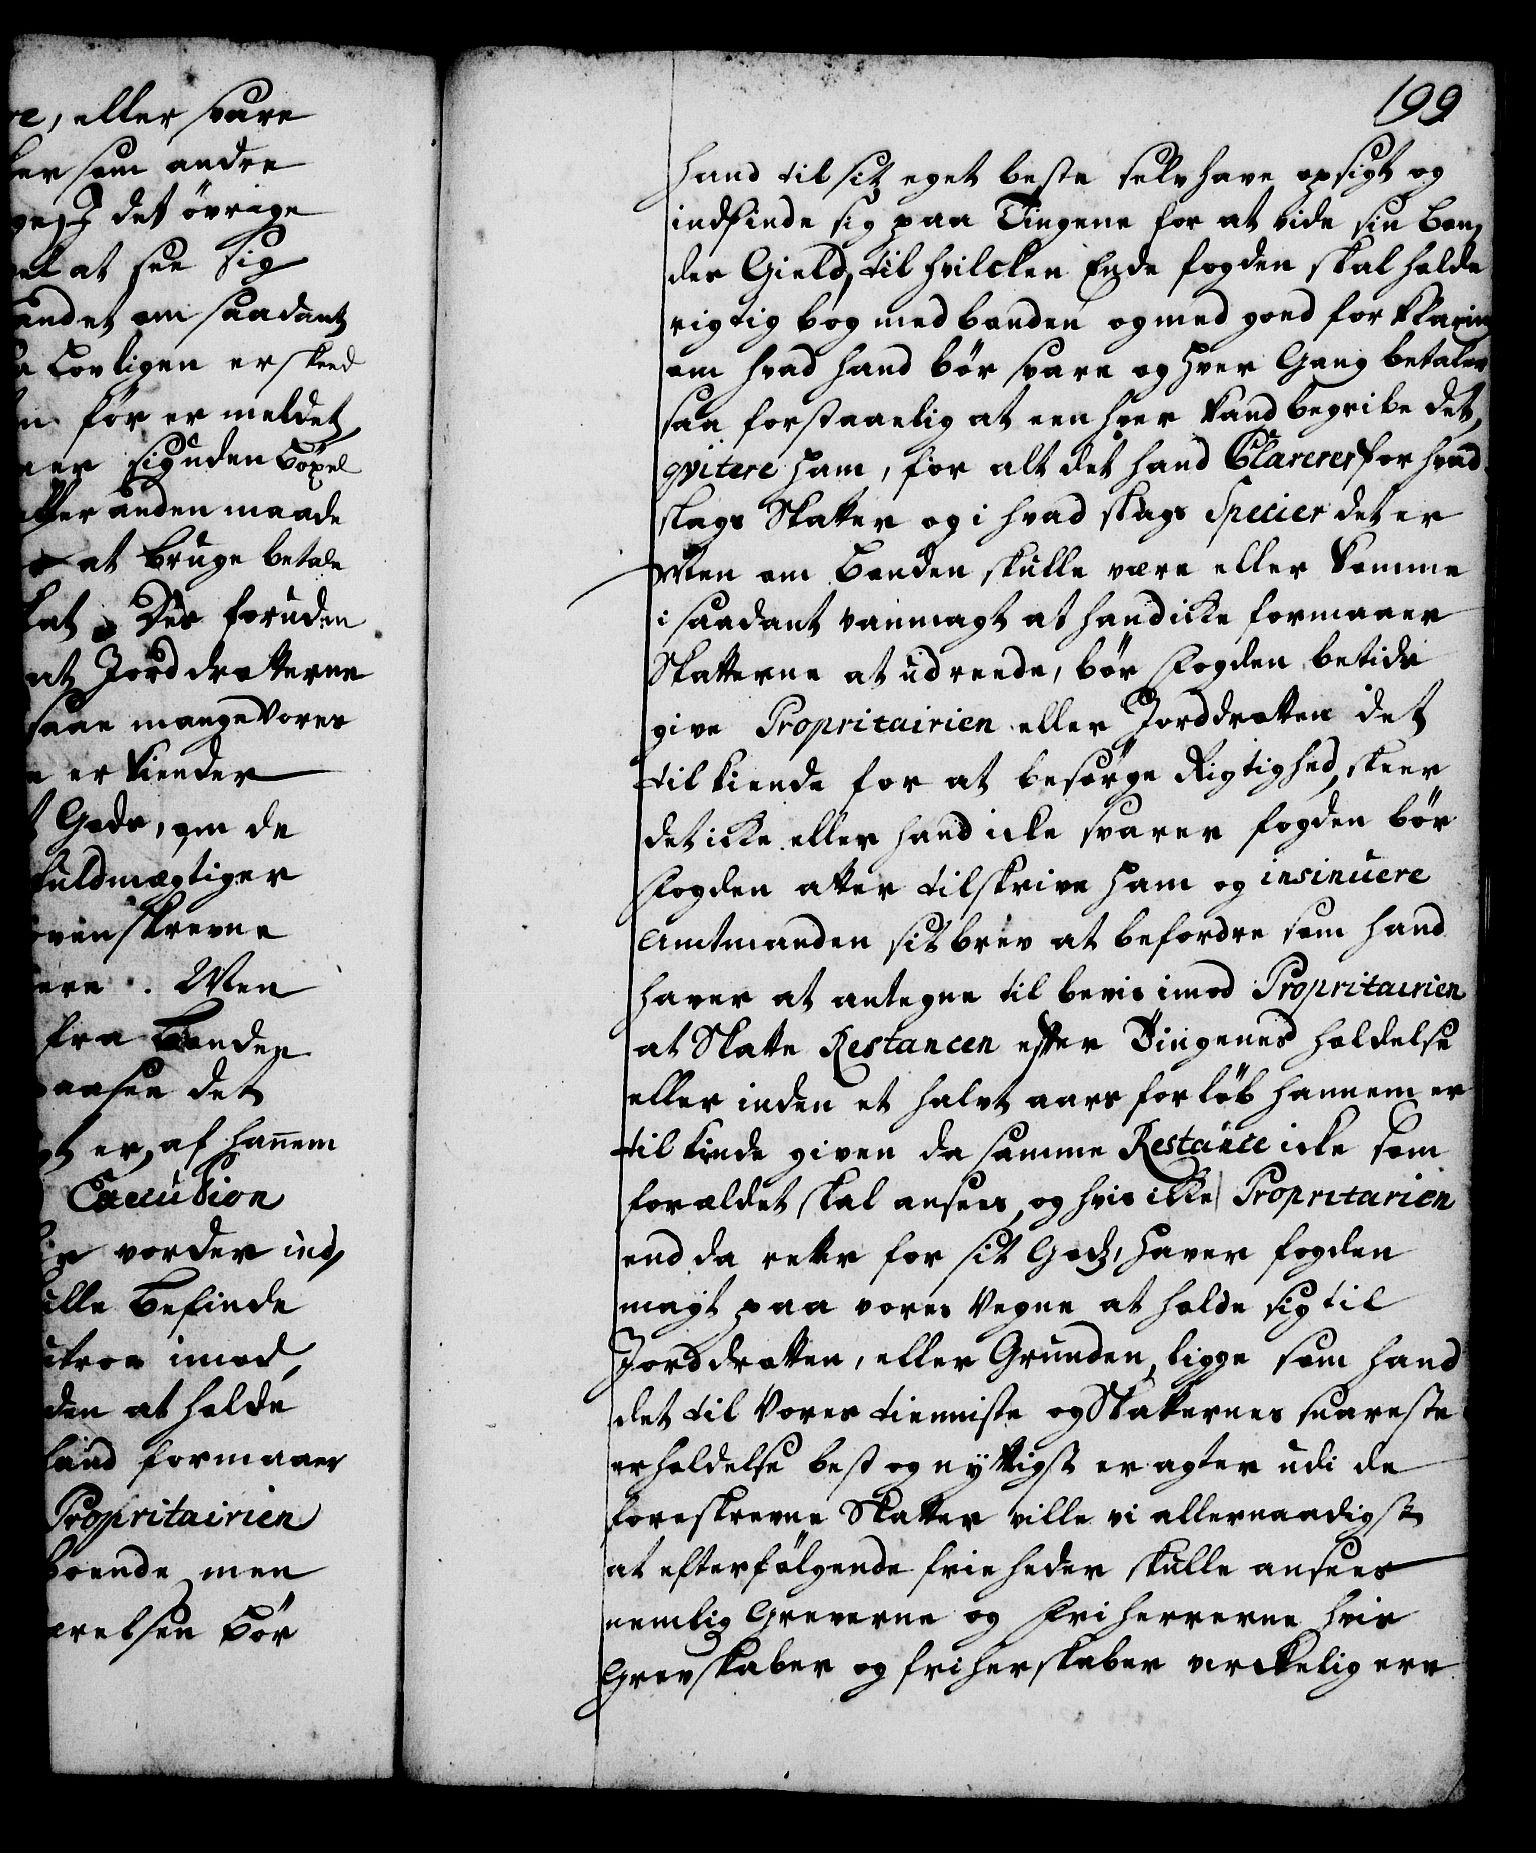 re, eller svare
som andre
det øvrige
at see sig
andet om saadant
Lovligen er skeed
før er meldet,
sig uden Bøxel
eller anden maade
at bruge betale
Des foruden
at Jorddrotterne
saae mange Vores
er kiender
Gods, om de
fuldmægtiger
ovenskrevne
ere. Men
fra Bonden
paasee det
er, af hannem
Execution
vorder ind,
ille befinde
imod,
den at holde
hand formaaer
Propritairien
boende men
ærelsen bør
199
hand til sit eget beste selv have opsigt og
indfinde sig paa Tingene for at vide sin Bon,
des Gield, til hvilcken Ende fogden skal holde
rigtig bog med bonden og med goed forklaring
om hvad hand bør svare og hver Gang betaler
saa forstaaelig at een hver kand begribe det,
qvitere ham, for alt det hand Clarerer for hvad
slags Skatter og i hvad slags Specier det er
Men om Bonden skulle være eller komme
i saadant vanmagt at hand icke formaaer
Skatterne at udreede, bør Fogden betids
give Propritairien eller Jorddrotten det
tilkiende for at besørge Rigtighed, skeer
det icke eller hand icke svarer fogden bør
Fogden atter tilskrive ham og insinuere
Amtmanden sit brev at befordre som hand
haver at antegne til bevis imod Propritairien
at Skatte Restancen efter Tingenes holdelse
eller inden et halvt aars forløb hannem er
tilkiende given da samme Restance icke som
forældet skal ansees, og hvis icke Propritarien
end da retter for sit Gods, haver fogden
magt paa vores Vegne at holde sig til
Jorddrotten, eller Grunden, ligge som hand
det til Vores tienniste og Skatternes snareste
erholdelse best og nyttigst eragter udi de
foreskrevne Skatter ville vi allernaadigst
at efterfølgende friheder skulle ansees
nemlig Greverne og Friherrerne hvis
Grevskaber og friherskaber verckelig ere